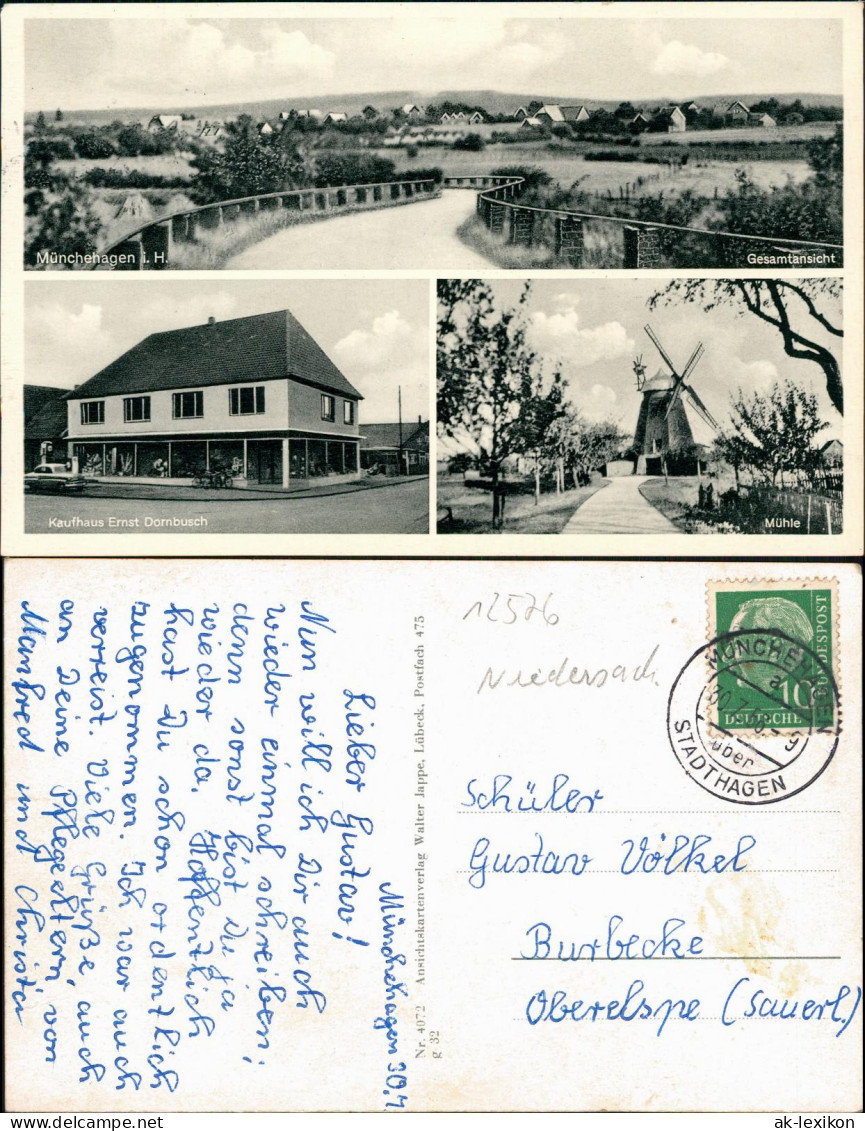 Münchehagen i. H.
Gesamtansicht
Kaufhaus Ernst Dornbusch
Mühle
Münchehagen 30.7.
Lieber Gustav!
Nun will ich Dir auch
wieder einmal schreiben;
denn sonst bist Du ja
wieder da. Hoffentlich
hast Du schon ordentlich
zugenommen. Ich war auch
verreist. Viele Grüße, auch
an Deine Pflegeeltern, von
Manfred und Christa
Nr. 4072 Ansichtskartenverlag Walter Jappe, Lübeck, Postfach 475
g 32
12576
Niedersach
DEUTSCHE
BUNDESPOST
10
MÜNCHEHAGEN
a
über
STADTHAGEN
Schüler
Gustav Völkel
Burbecke
Oberelspe (Sauerl.)
ak-lexikon